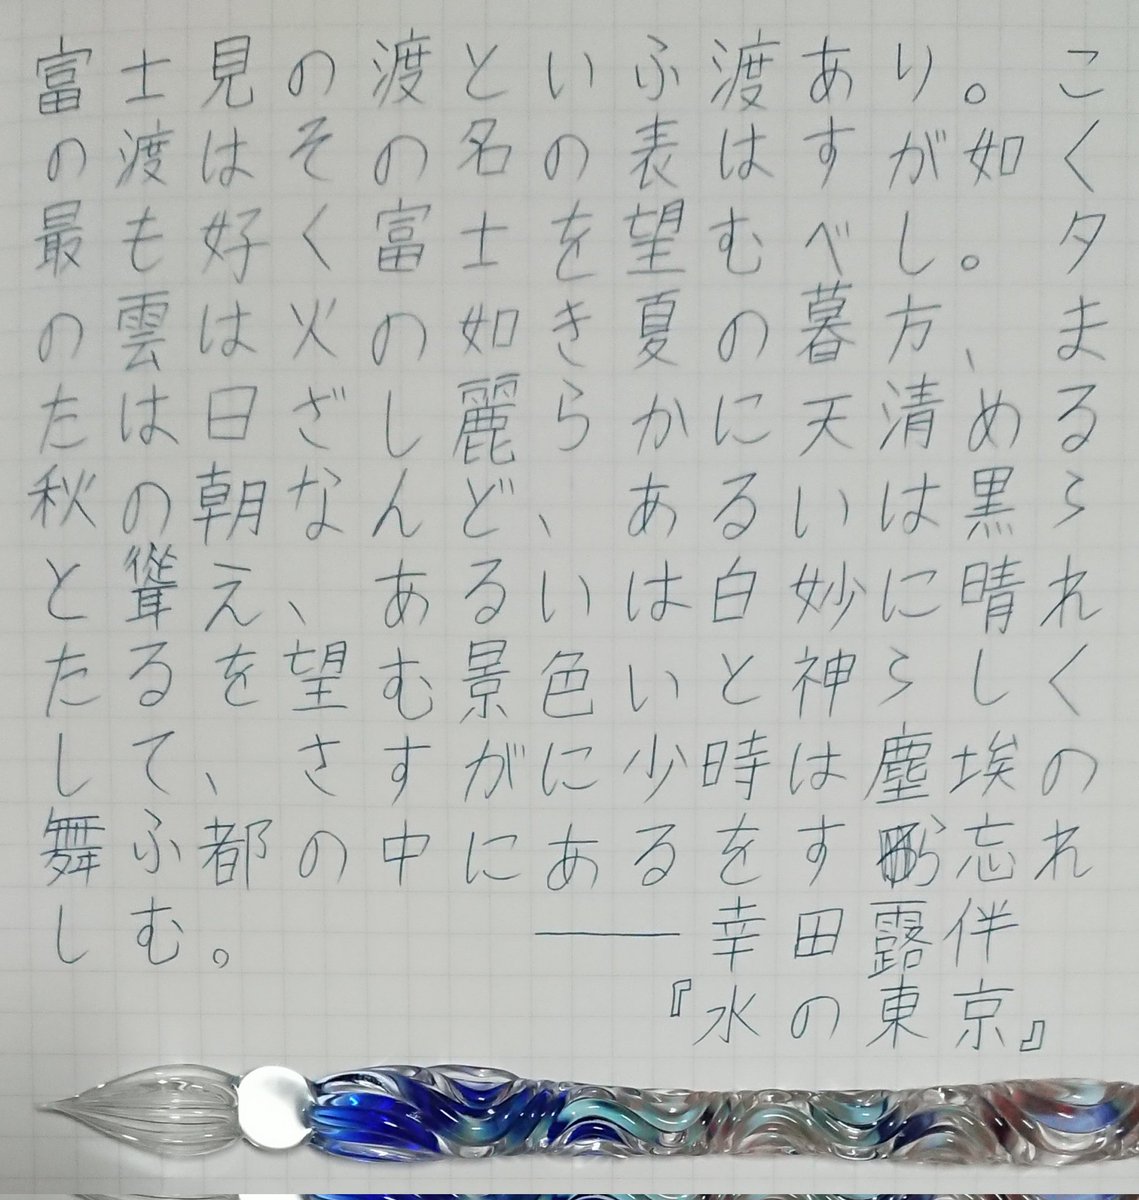 富士見の渡といふ渡あり。こ
の渡はその名の表はすが如く
最も好く富士を望むべし。夕
の雲は火の如き夏の暮方、ま
たは日ざし麗らかに天清める
秋の朝なんど、あるいは黒ら
と聳え、あるいは白妙に晴れ
たるを望む景色いと神らしく
して、さすがに少時は塵埃の
舞ふ都の中にあるをす忘れ
しむ。 ――幸田露伴
『水の東京』